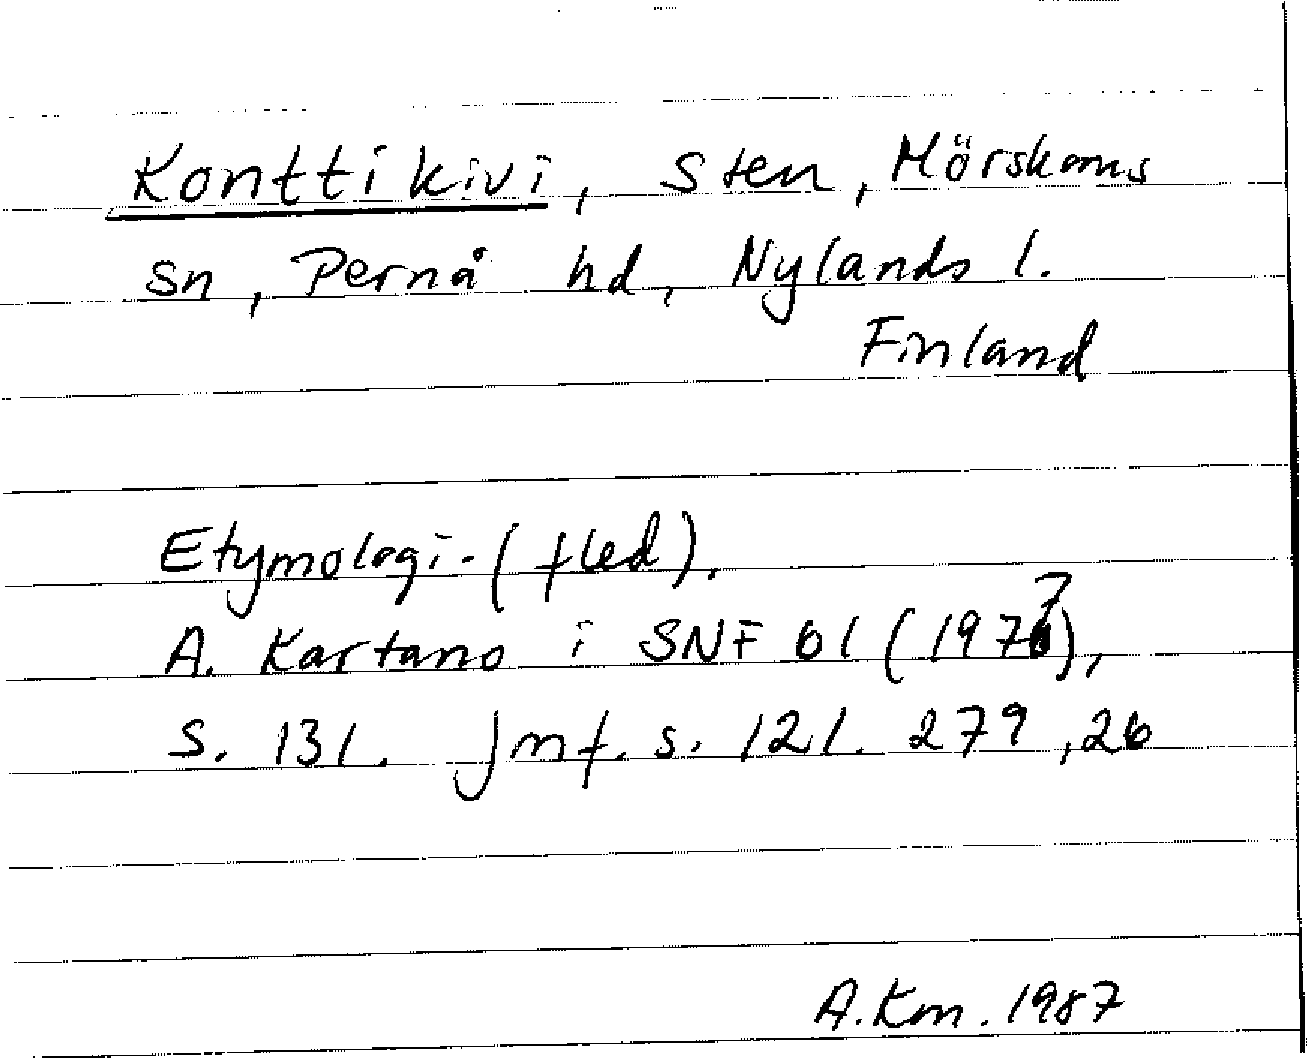 Konttikivi, sten, Mörskoms
sn, Pernå hd, Nylands l.
Finland
Etymologi. (fled).
A. Kartano i SNF 61 (1977),
s. 131. Jmf. s. 121. 279, 26
A. Km. 1987